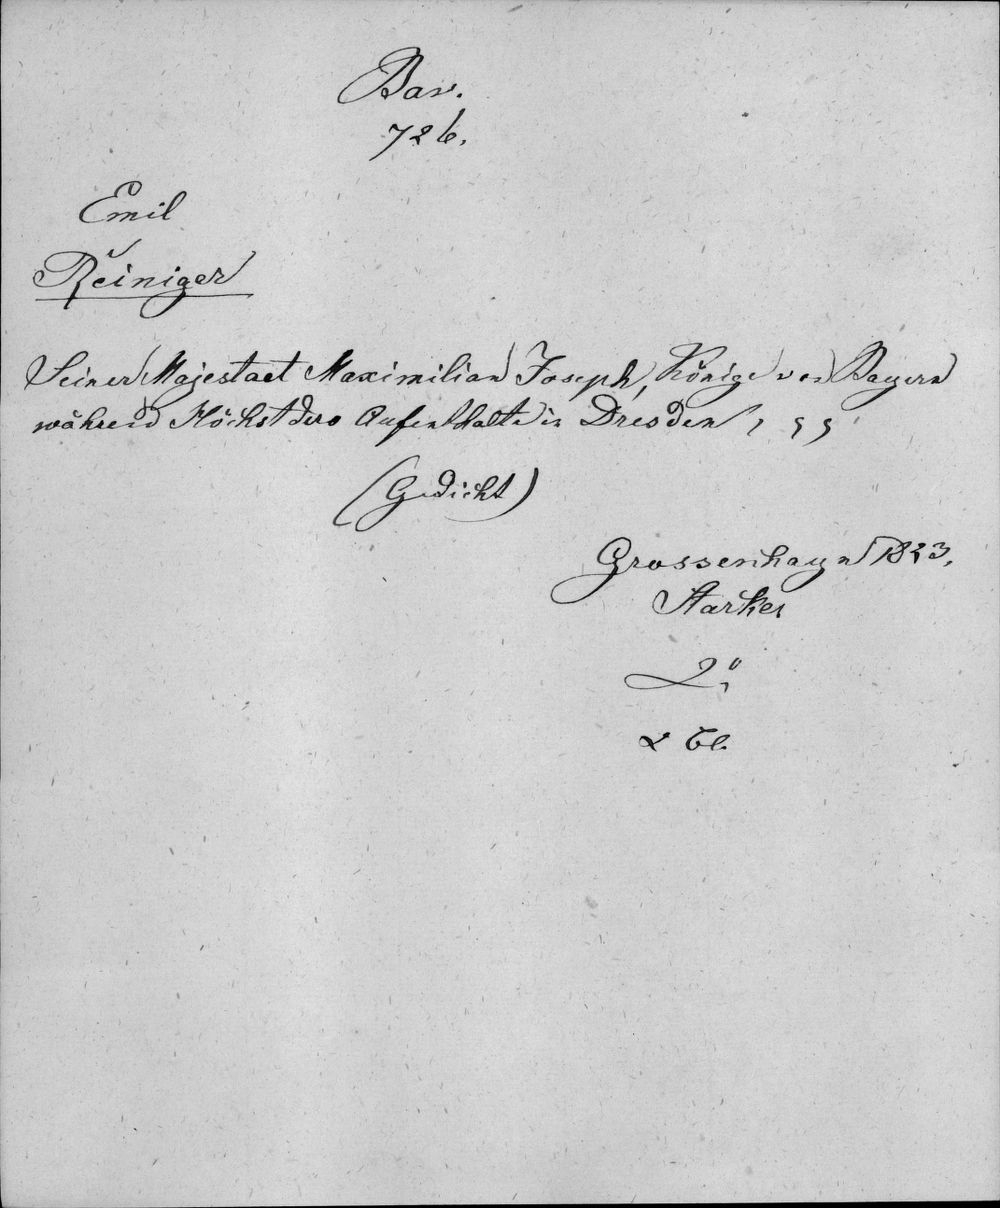 Bav.
726.
Emil
Reiniger
Seiner Majestaet Maximilian Joseph, Könige von Bayern
während Höchst dero Aufenthalts in Dresden,
(Gedicht)
Grossenhayn 1823.
Starke
2°
2 Bl.